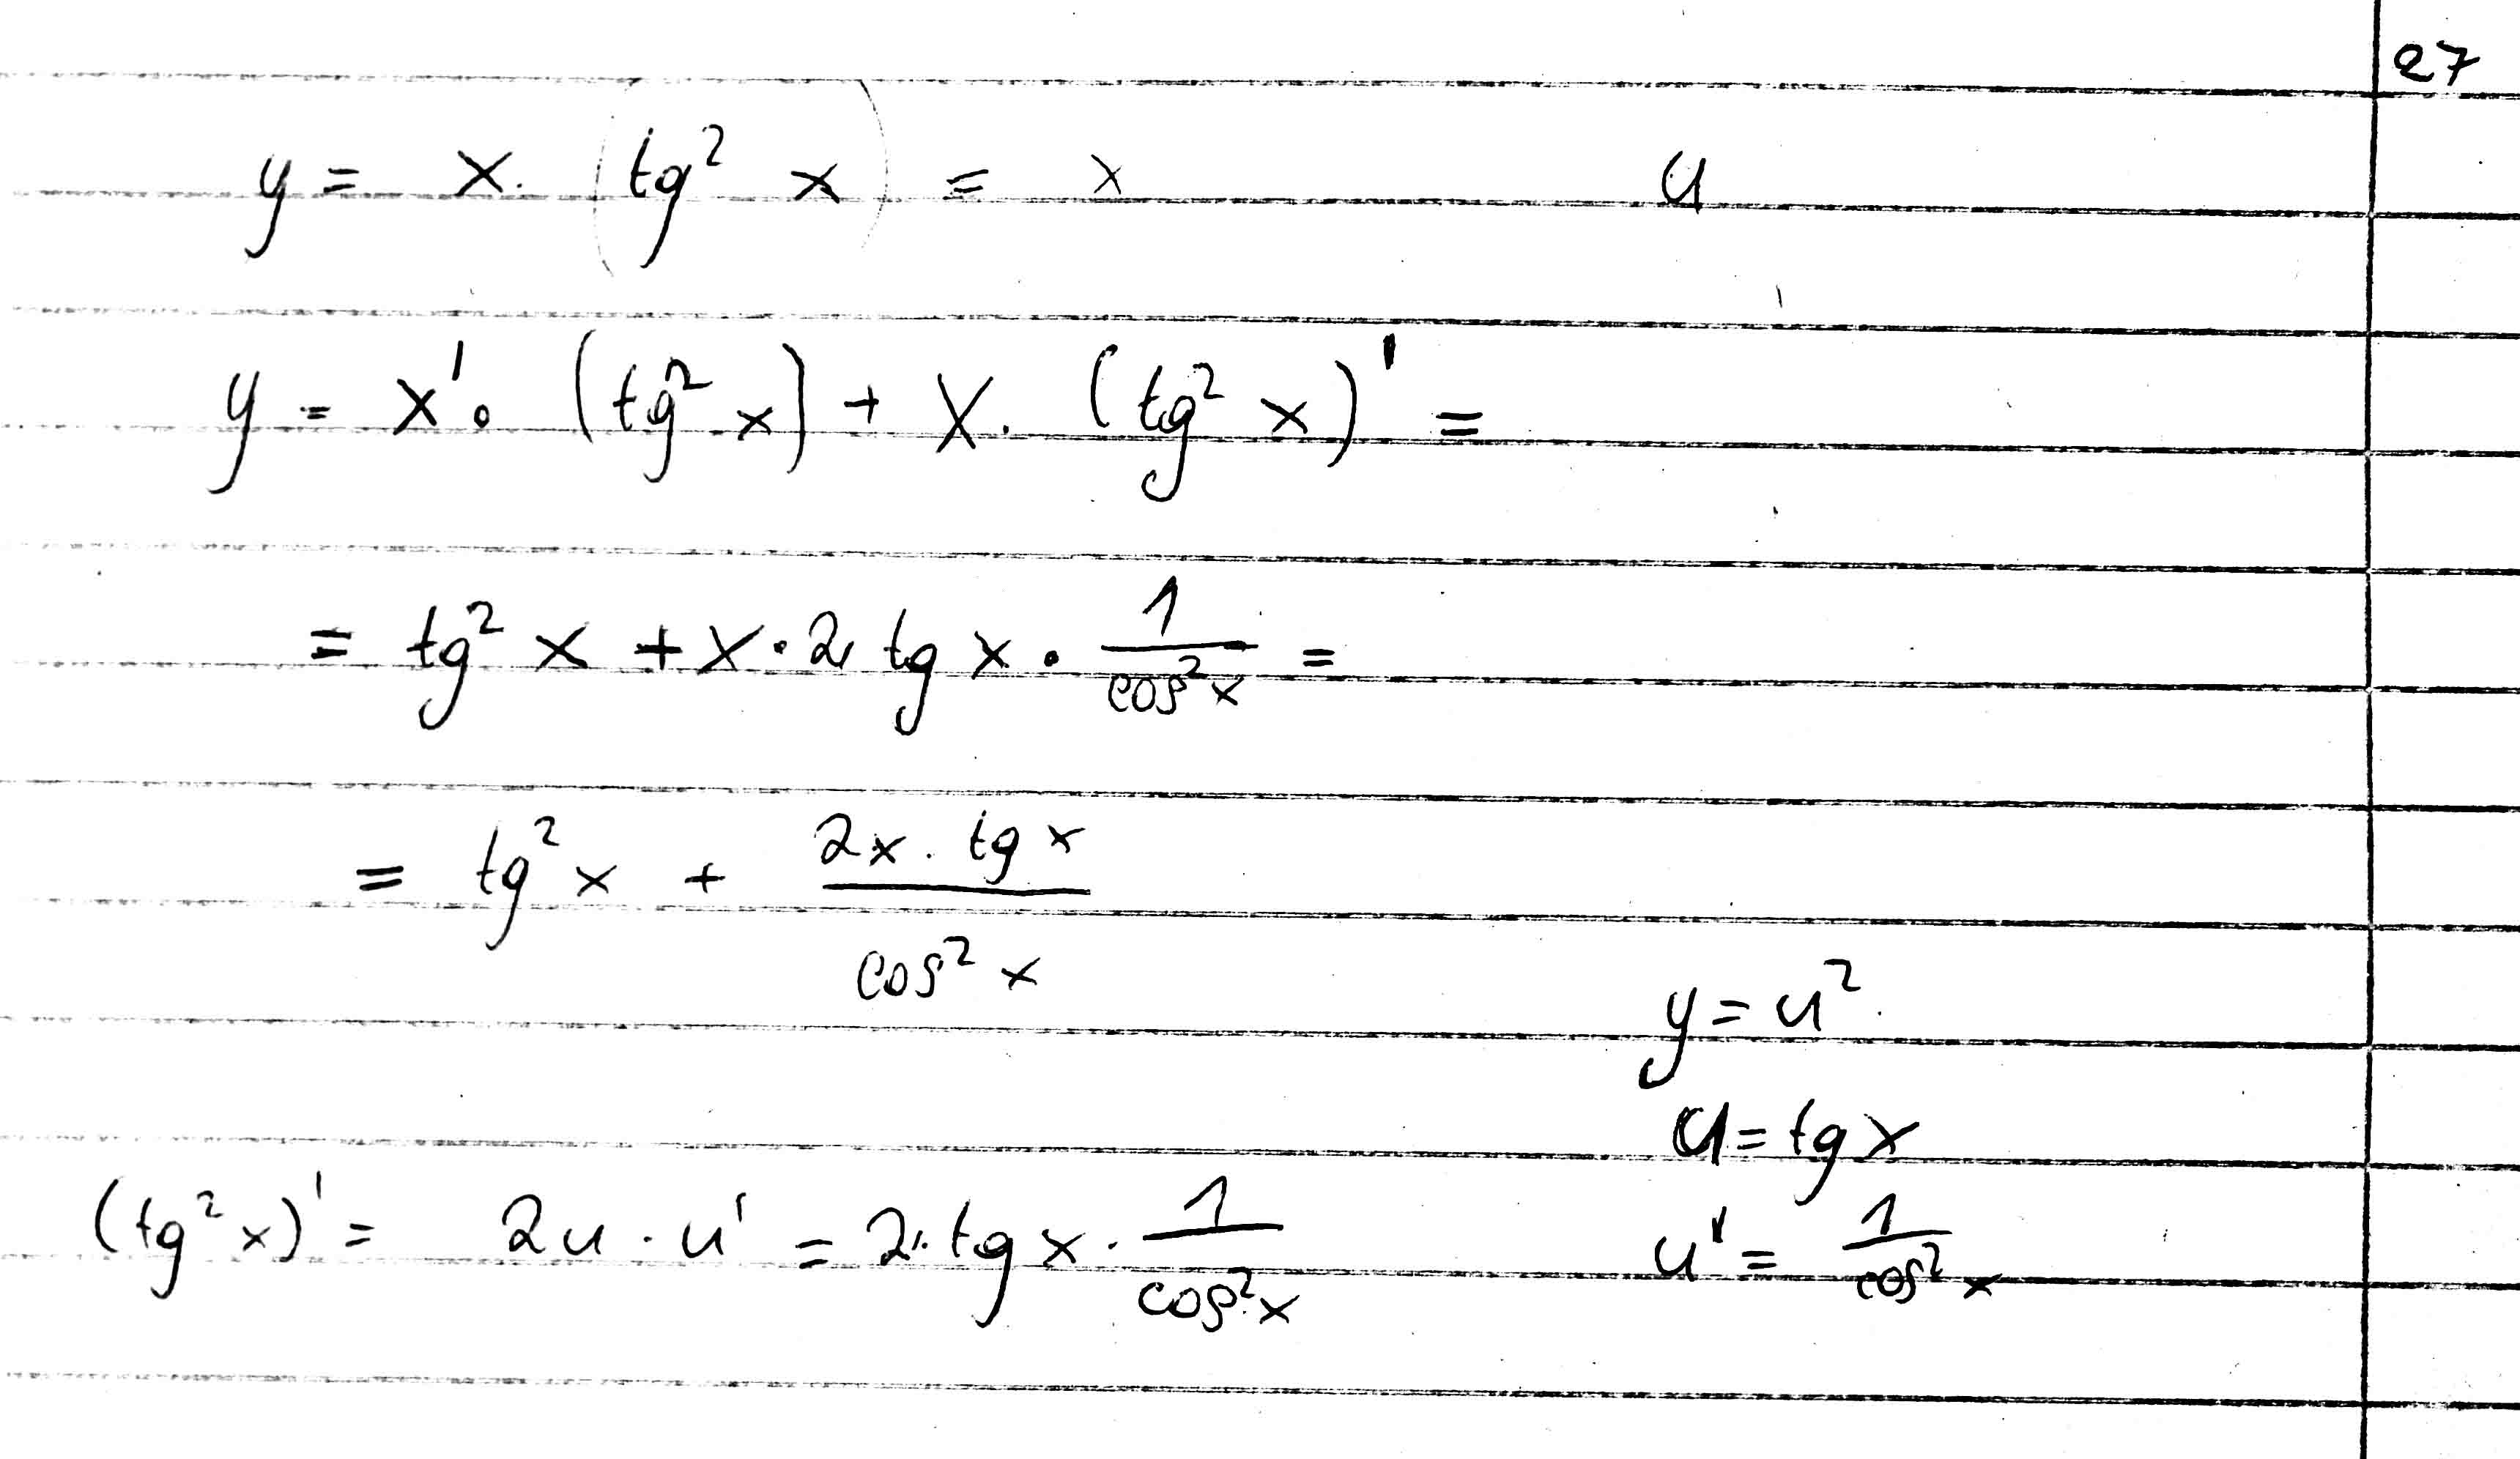 27
y = x · (tg² x) = x u
y = x' · (tg² x) + x · (tg² x)' =
= tg² x + x · 2 · tg x · 1/cos² x =
= tg² x + 2x · tg x / cos² x
y = u²
u = tg x
(tg² x)' = 2u · u' = 2 · tg x · 1/cos² x u' = 1/cos² x